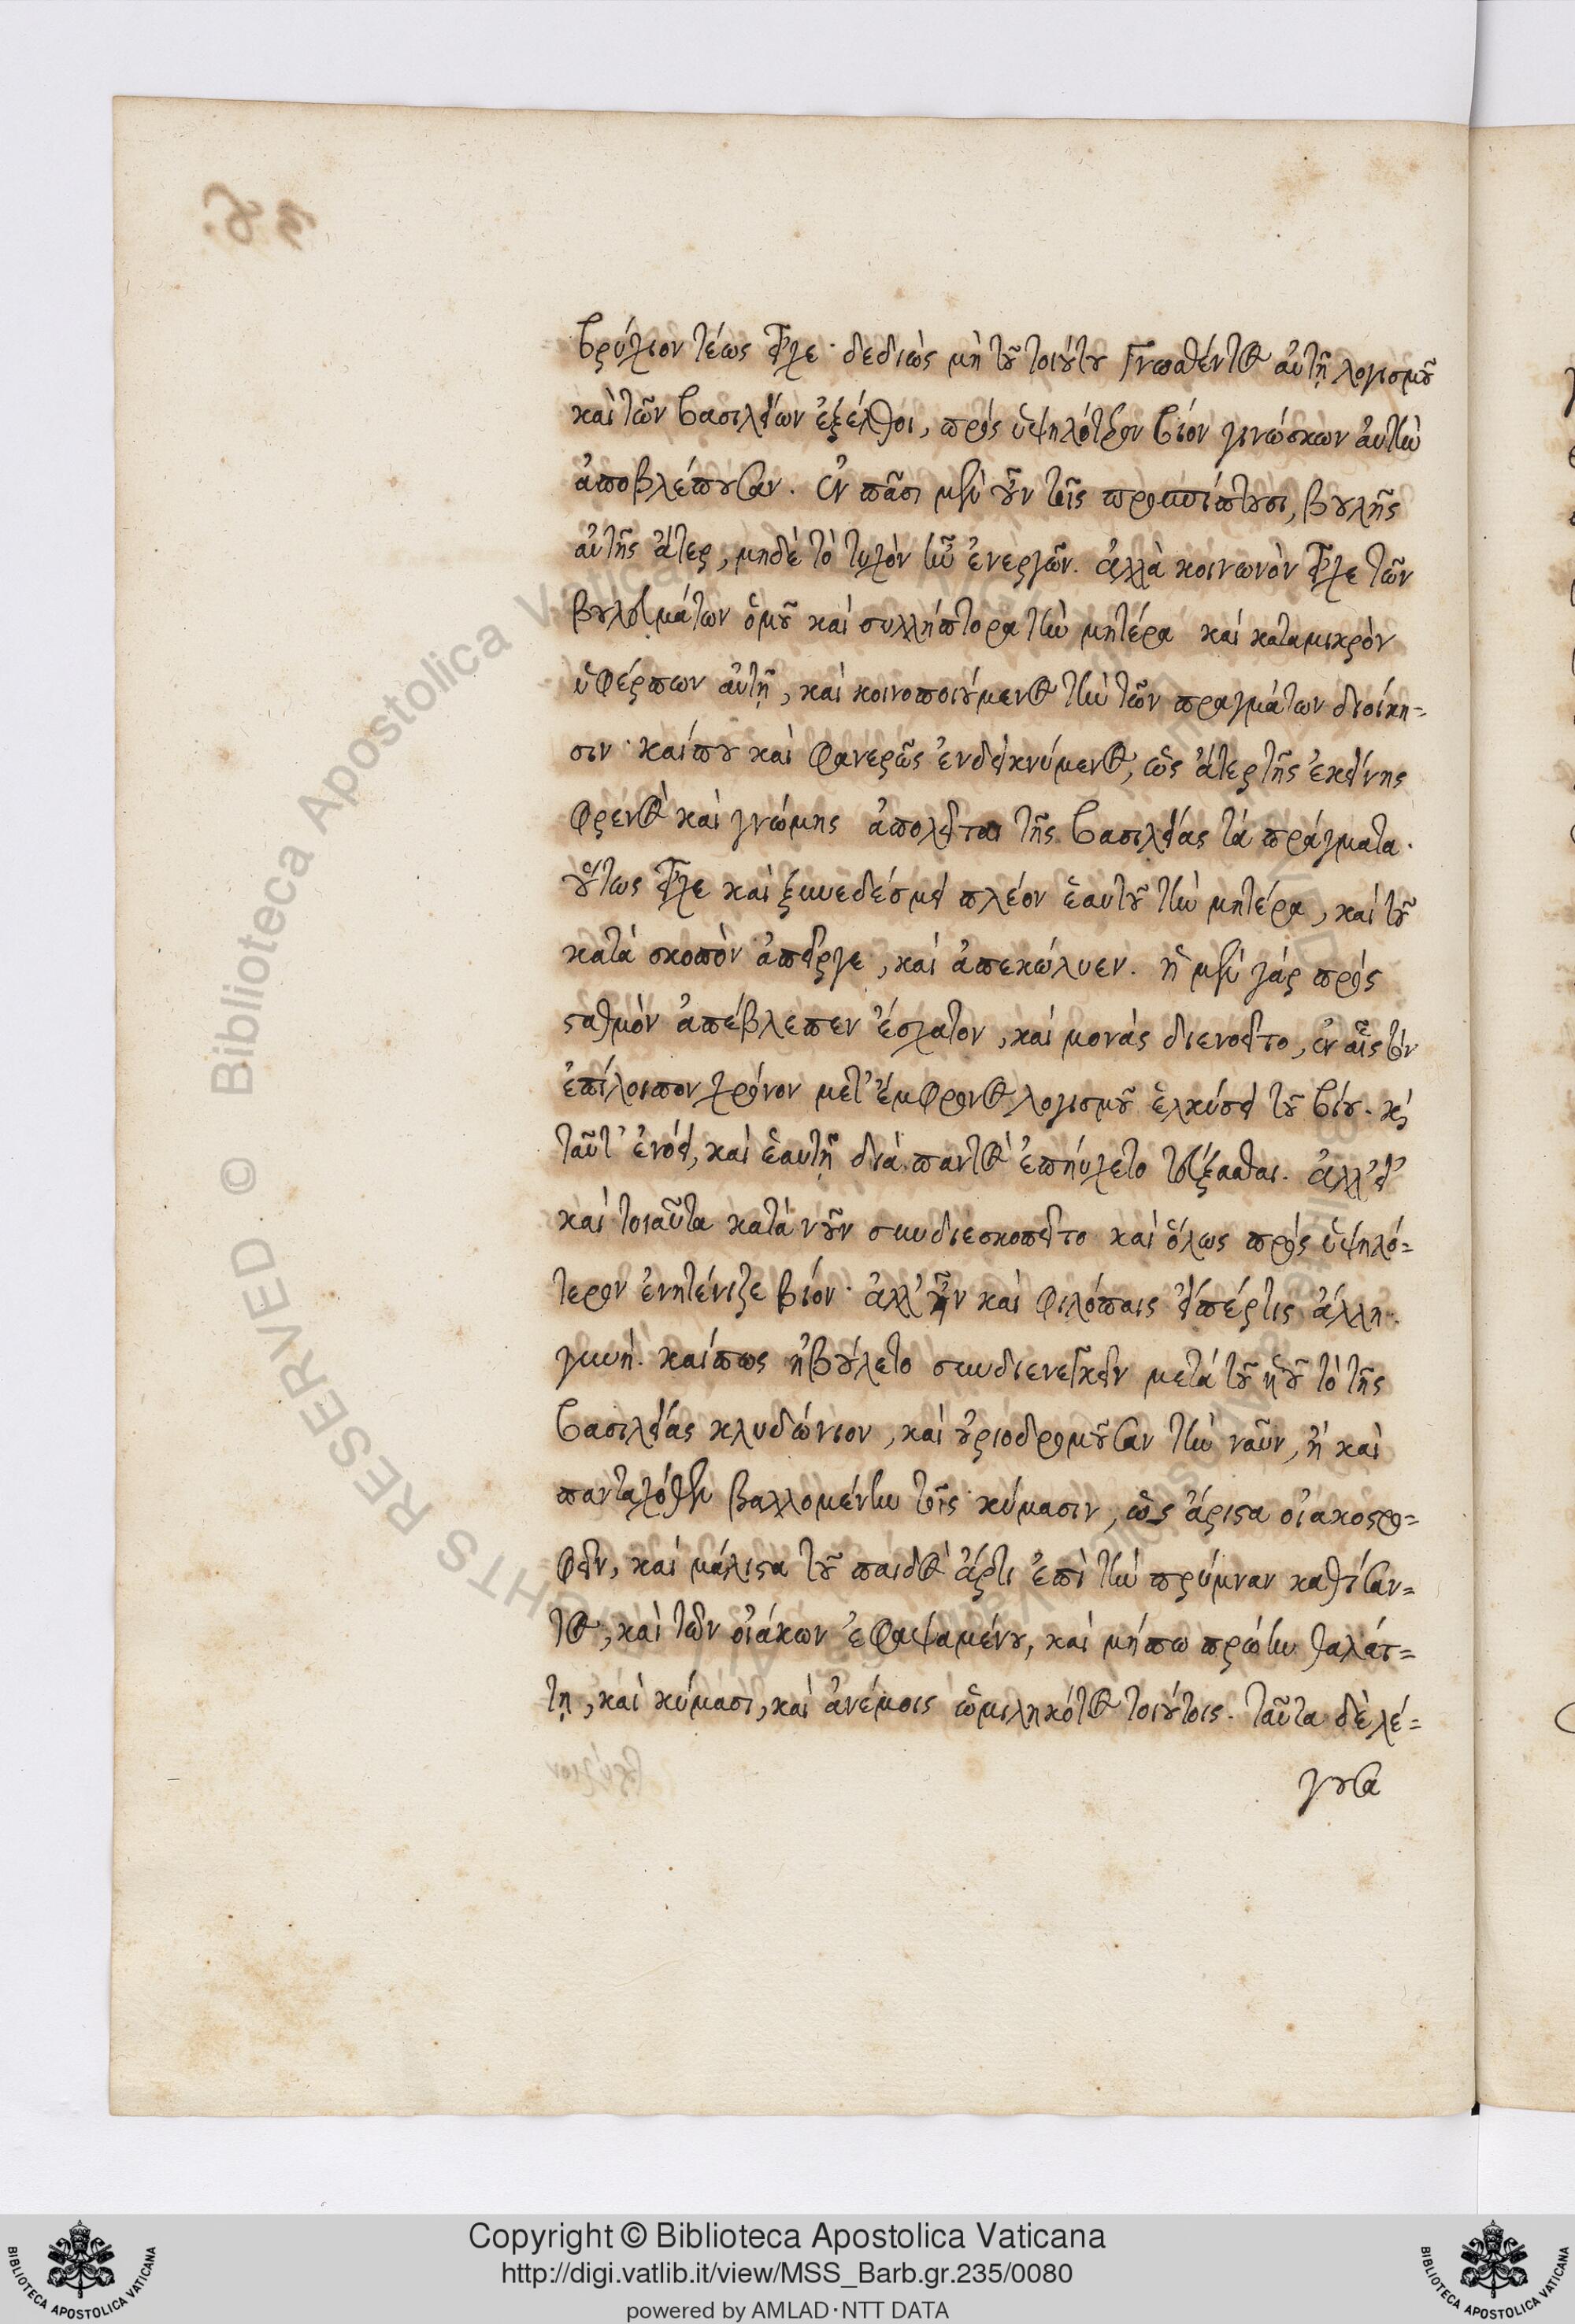 βρύχιον τέως εἶχε· δεδιὼς μὴ τοῦ τοιούτου ἐντραθέντος αὐτῇ λογισμοῦ
καὶ τῶν βασιλείων ἐξέλθοι, πρὸς ὑψηλότερον βίον γινώσκων αὐτὴν
ἀποβλέπουσαν. ἐν πᾶσι μὲν οὖν τοῖς προσπίπτουσι, βουλῆς
αὐτῆς ἄτερ, μηδὲ τὸ τυχὸν ἦν ἐνεργῶν. ἀλλὰ κοινωνὸν εἶχε τῶν
βουλευμάτων ὁμοῦ καὶ συλλήπτορα τὴν μητέρα καὶ καταμικρὸν
ὑφέρπων αὐτῇ, καὶ κοινοποιούμενος τὴν τῶν πραγμάτων διοίκη=
σιν· καίπου καὶ φανερῶς ἐνδεικνύμενος, ὡς ἄτερ τῆς ἐκείνης
φρενὸς καὶ γνώμης ἀπολεῖται τῆς βασιλείας τὰ πράγματα.
οὕτως εἶχε καὶ ξυνεδέσμει πλέον ἑαυτοῦ τὴν μητέρα, καὶ τοῦ
κατὰ σκοπὸν ἀπεῖργε, καὶ ἀπεκώλυεν. ἡ μὲν γὰρ πρὸς
σταθμὸν ἀπέβλεπεν ἔσχατον, καὶ μονὰς διενοεῖτο, ἐν αἷς τὸν
ἐπίλοιπον χρόνον μετ' ἔμφρονος λογισμοῦ ἑλκύσει τοῦ βίου. καὶ
ταῦτ' ἐνόει, καὶ ἑαυτῇ διὰ παντὸς ἐπηύχετο τεύξασθαι. ἀλλ' εἰ
καὶ τοιαῦτα κατὰ νοῦν συνδιεσκοπεῖτο καὶ ὅλως πρὸς ὑψηλό=
τερον ἐνητένιζε βίον· ἀλλ' οὖν καὶ φιλόπαις εἴπέρτις ἄλλη.
γυνή. καίπως ἠβούλετο συνδιενεγκεῖν μετὰ τοῦ υἱοῦ τὸ τῆς
βασιλείας κλυδώνιον, καὶ οὐριοδρομοῦσαν τὴν ναῦν, ἢ καὶ
πανταχόθεν βαλλομένην τοῖς κύμασιν, ὡς ἄριστα οἰακοστρο=
φεῖν, καὶ μάλιστα τοῦ παιδὸς ἄρτι ἐπὶ τὴν πρύμναν καθίσαν=
τος, καὶ τῶν οἰάκων ἐφαψαμένου, καὶ μήπω πρώτην θαλάτ=
τῃ, καὶ κύμασι, καὶ ἀνέμοις ὡμιληκότος τοιούτοις. ταῦτα δὲ λέ=
γουσα
Copyright © Biblioteca Apostolica Vaticana
http://digi.vatlib.it/view/MSS_Barb.gr.235/0080
powered by AMLAD·NTT DATA